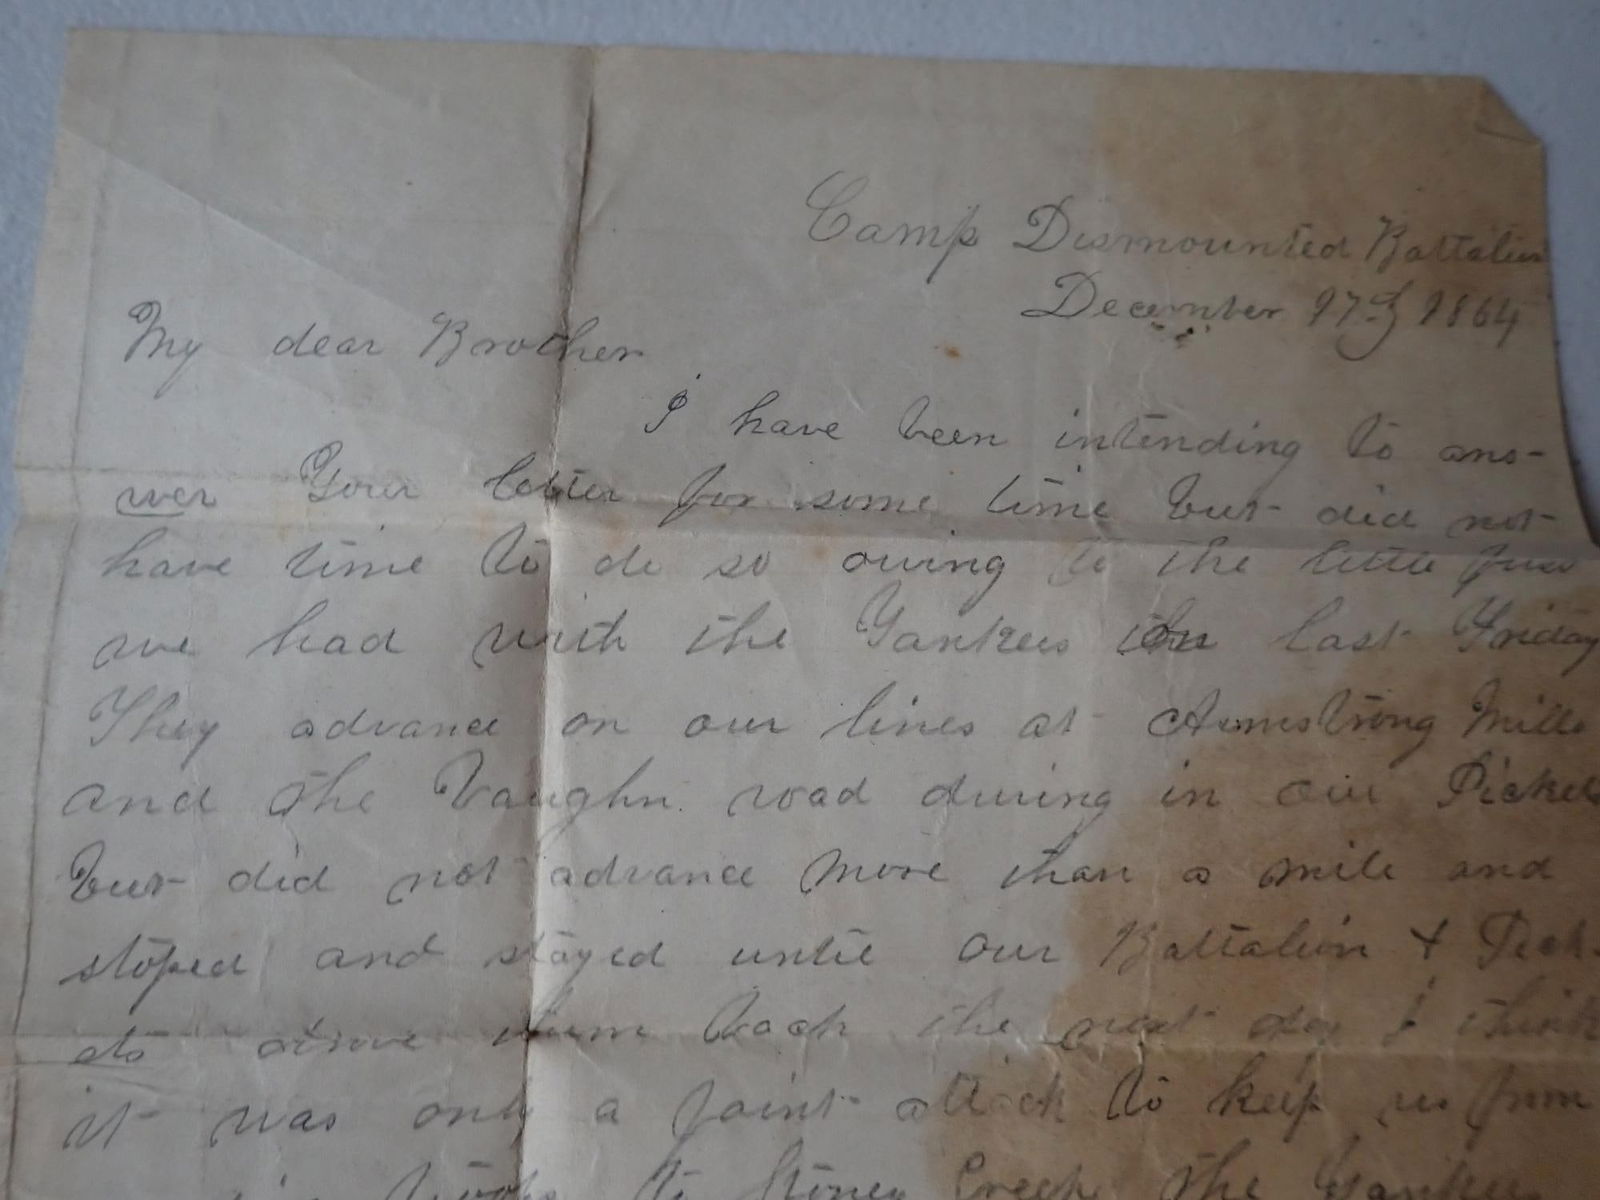 Camp Dismounted Battalion
December 17th 1864
My dear Brother
I have been intending to ans-
wer Your letter for some time but did not
have time to do so owing to the little fuss
we had with the Yankees on last Friday
They advance on our lines at Armstrong Mills
and the Vaughn road driving in our Pickets
but did not advance more than a mile and
stoped and stayed until our Battalion & Pick-
ets drove them back the next day I think
it was only a faint attack to keep us from
troops to Stoney Creek the Yankees